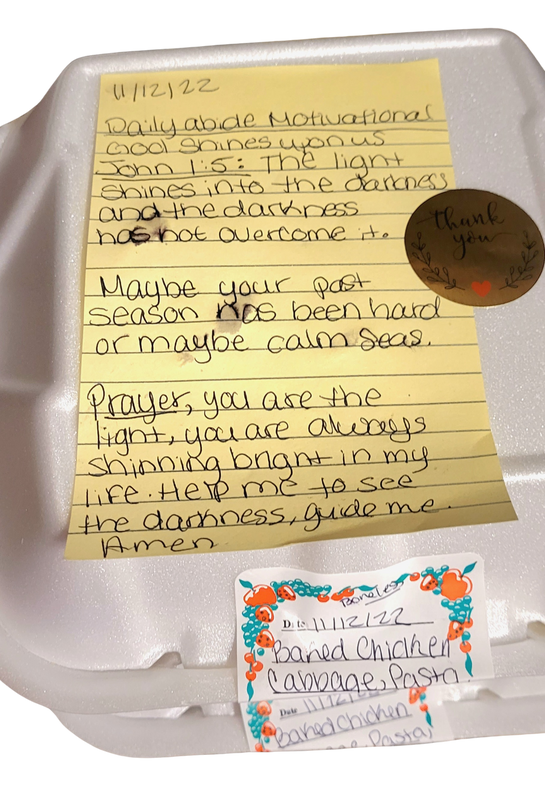 11/12/22
Daily abide Motivational
God shines upon us
John 1:5: The light
shines into the darkness
and the darkness
has not overcome it.
Maybe your past
season has been hard
or maybe calm seas.
Prayer, you are the
light, you are always
shinning bright in my
life. Help me to see
the darkness, guide me.
Amen
thank
you
Boneless
Date 11/12/22
Baked Chicken
Cabbage, Pasta
Date 11/12/22
Baked Chicken
Pasta,